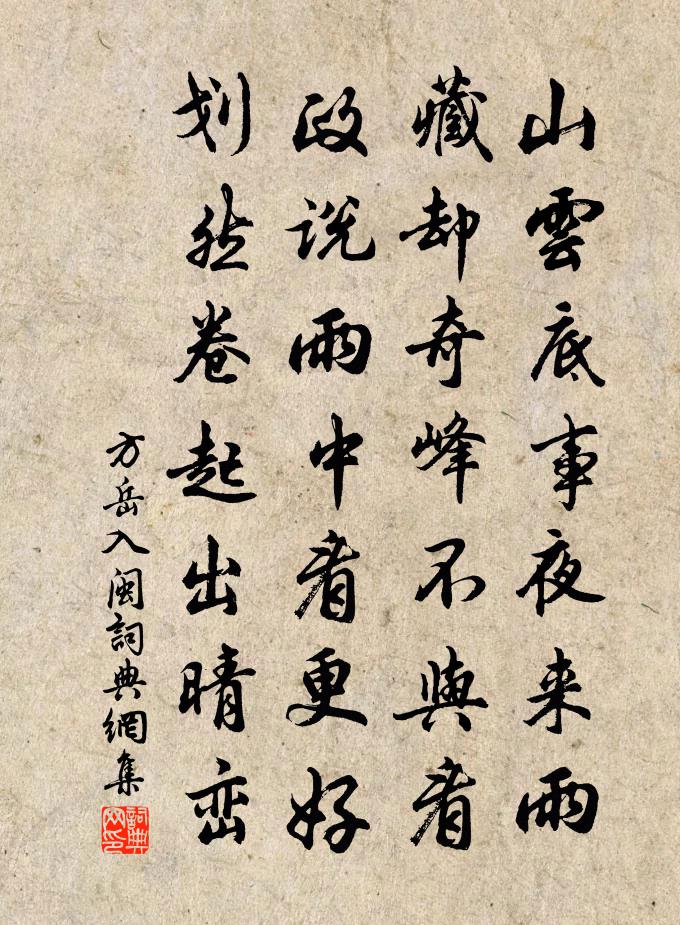 山雲底事夜来雨
藏却奇峰不與看
政説雨中看更好
划然卷起出晴峦
方岳入闽詞典網集
詞典網印